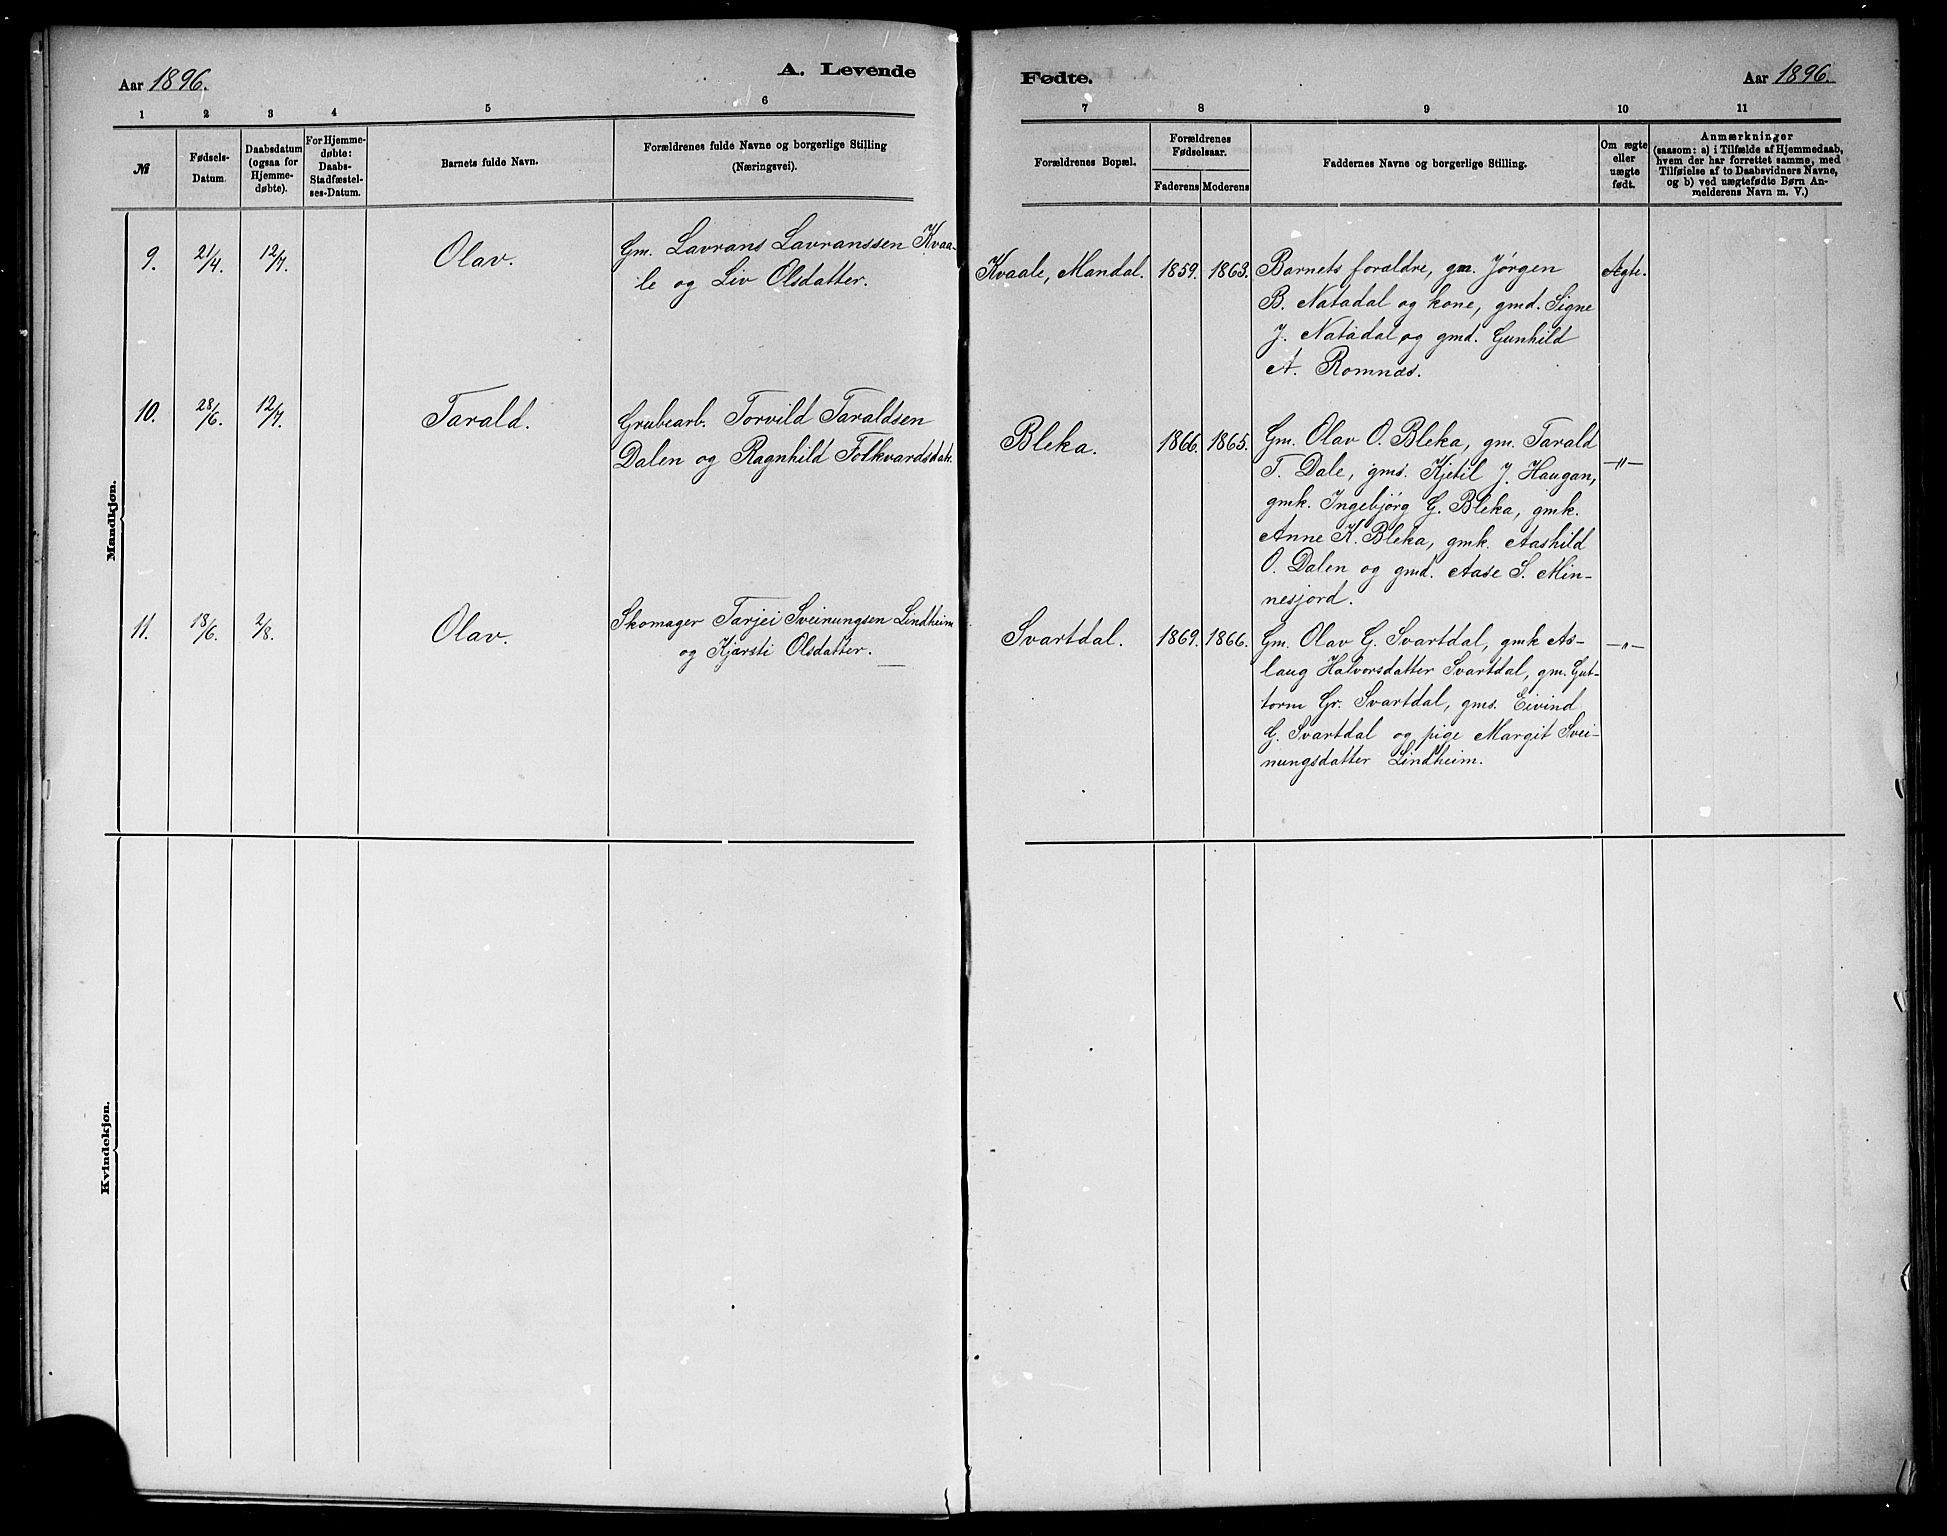 Aar 1896.
A. Levende
1 2 3 4 5 6
№
Fødsels-
Datum.
Daabsdatum
(ogsaa for
Hjemme-
døbte).
For Hjemme-
døbte:
Daabs-
Stadfæstel-
ses-Datum.
Barnets fulde Navn.
Forældrenes fulde Navne og borgerlige Stilling
(Næringsvei).
Mandkjøn.
9. 21/4. 12/7. Olav. Gm. Lavrans Lavranssen Kvaa-
le og Liv Olsdatter.
10. 28/6. 12/7. Tarald. Grubearb. Torvild Taraldsen
Dalen og Ragnhild Folkvardsdatr.
11. 18/6. 2/8. Olav. Skomager Tarjei Sveinungsen Lindheim
og Kjærsti Olsdatter.
Kvindekjøn.
Fødte.
Aar 1896.
7 8 9 10 11
Forældrenes Bopæl.
Forældrenes
Fødselsaar.
Faderens Moderens
Faddernes Navne og borgerlige Stilling.
Om ægte
eller
uægte
født.
Anmærkninger
(saasom: a) i Tilfælde af Hjemmedaab,
hvem der har forrettet samme, med
Tilføielse af to Daabsvidners Navne,
og b) ved uægtefødte Børn An-
melderens Navn m. V.)
Kvaale, Mandal. 1859. 1863. Barnets forældre, gm. Jørgen Ægte.
B. Natadal og kone, gmd. Signe
J. Natadal og gmd. Gunhild
A. Romnæs.
Bleka. 1866. 1865. Gm. Olav O. Bleka, gm. Tarald —"—
T. Dale, gms. Kjetil J. Haugan,
gmk. Ingebjørg G. Bleka, gmk.
Anne K. Bleka, gmk. Aashild
O. Dalen og gmd. Aase S. Min-
nesjord.
Svartdal. 1869. 1866. Gm. Olav G. Svartdal, gmk As- —"—
laug Halvorsdatter Svartdal, gm. Gut-
torm Gr. Svartdal, gms. Eivind
G. Svartdal og pige Margit Svei-
nungsdatter Lindheim.